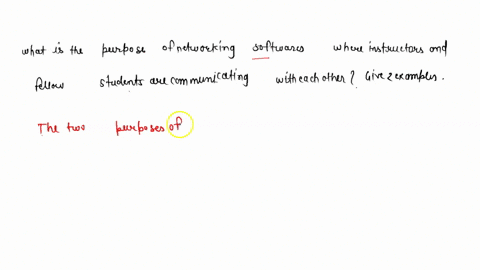 what is the purpose of networking softwares where instructors and
fellow students are communicating with each other? Give 2 examples.
The two purposes of